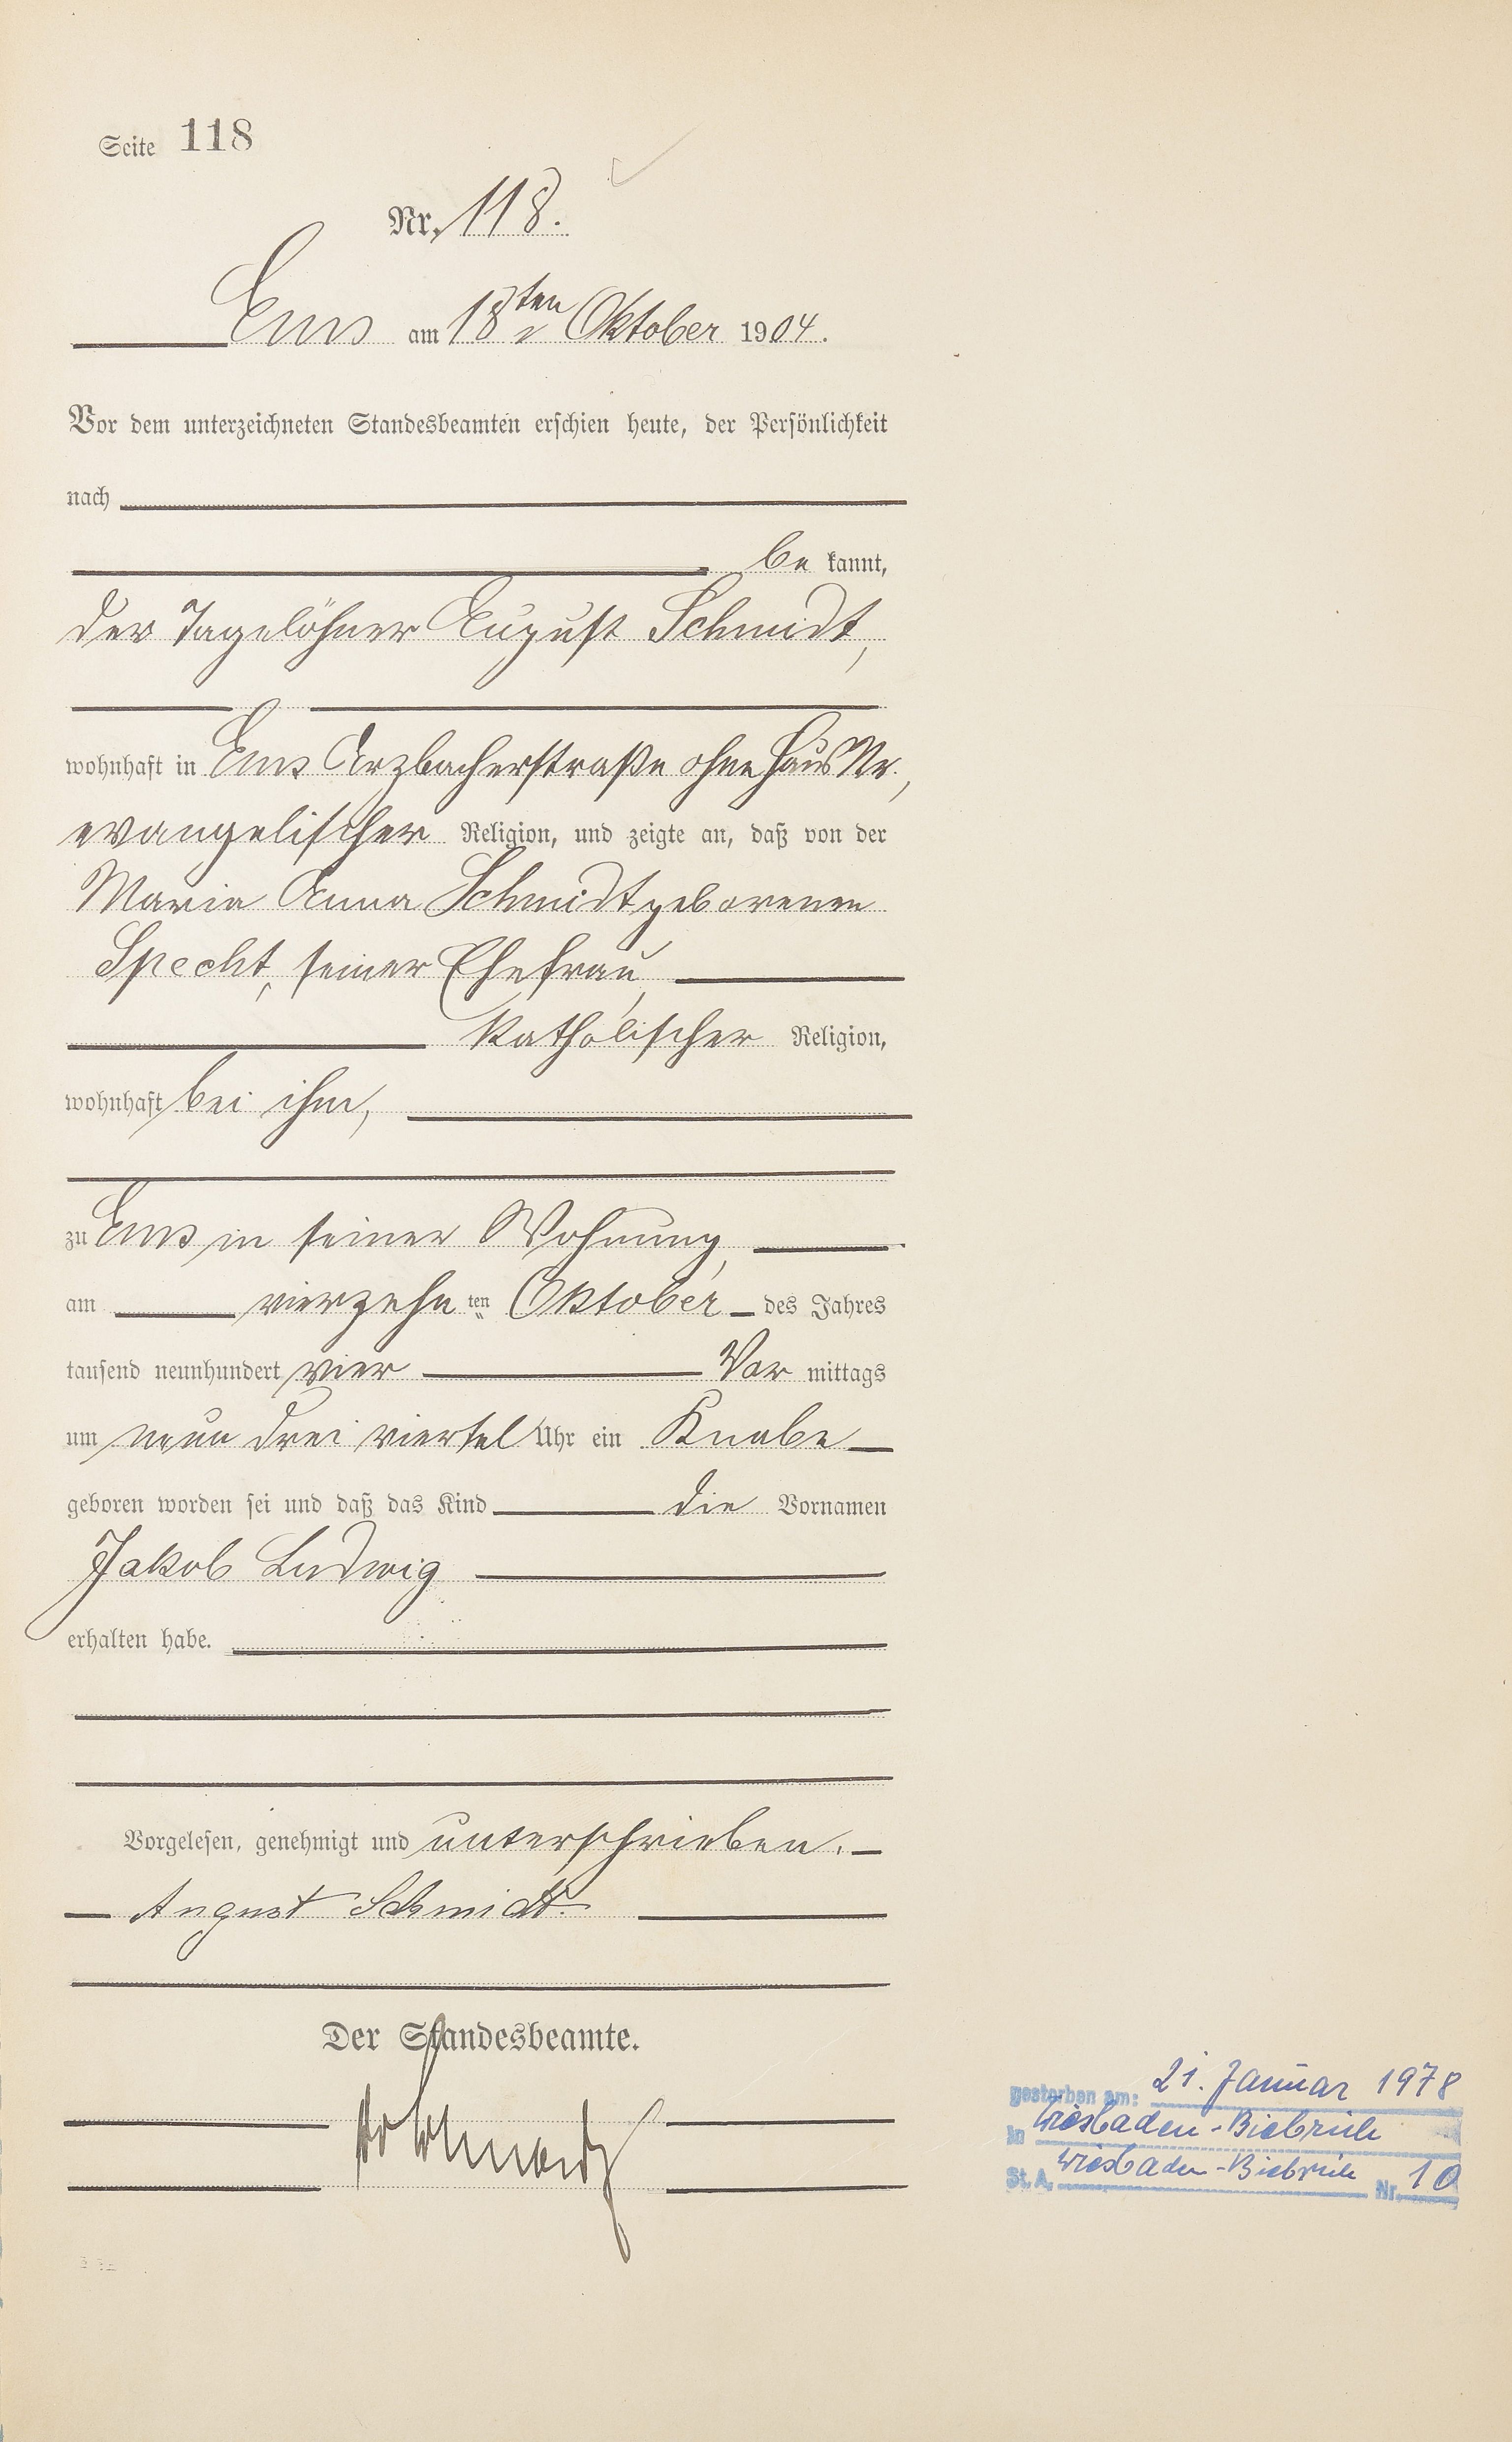 Seite 118
Nr. 118.
Ems am 18ten Oktober 1904.
Vor dem unterzeichneten Standesbeamten erschien heute, der Persönlichkeit
nach
be kannt,
der Tagelöhner August Schmidt,
wohnhaft in Ems Arzbacherstraße ohne Haus Nr.,
evangelischer Religion, und zeigte an, daß von der
Maria Anna Schmidt geborenen
Specht, seiner Ehefrau,
katholischer Religion,
wohnhaft bei ihm,
zu Ems in seiner Wohnung,
am vierzehn ten Oktober des Jahres
tausend neunhundert vier Vor mittags
um neun drei viertel Uhr ein Knabe
geboren worden sei und daß das Kind die Vornamen
Jakob Ludwig
erhalten habe.
Vorgelesen, genehmigt und unterschrieben.
August Schmidt.
Der Standesbeamte.
gestorben am: 21. Januar 1978
in Wiesbaden-Biebrich
St. A. Wiesbaden-Biebrich Nr. 10